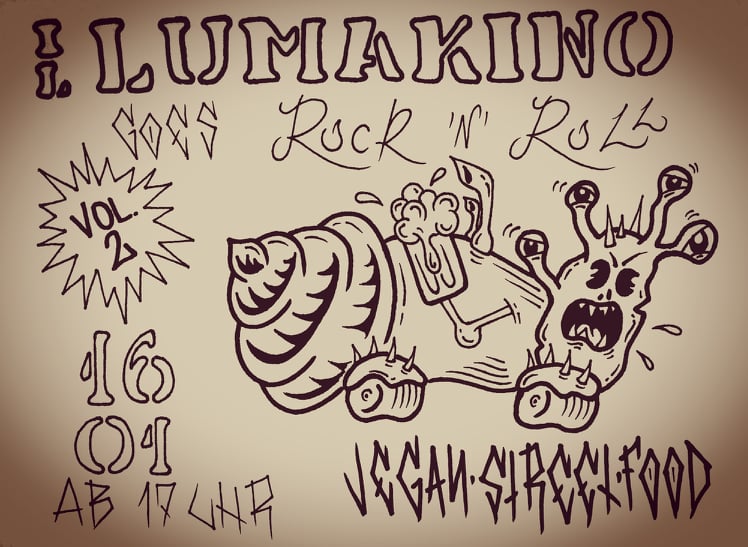 IL LUMAKINO
GOES Rock 'N' Roll
VOL. 2
16
01
AB 17 UHR
VEGAN·STREET·FOOD